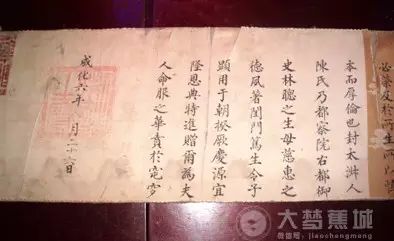 必荣及於所生所以
本而厚倫也封太淑人
陳氏乃都察院右都御
史林聰之生母慈惠之
德夙著閨門篤生令子
顕用于朝揆厥慶源宜
隆恩典特進贈爾為夫
人命服之華賁於窀穸
成化六年 月二十六日
大梦蕉城
微信号：jiaochengmeng